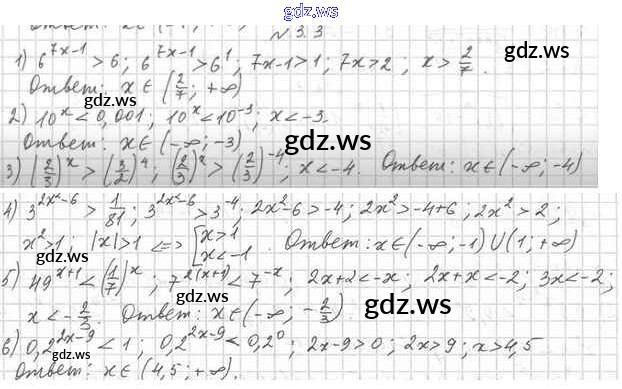 gdz.ws
N 3.3
1) 6^{7x-1} > 6; 6^{7x-1} > 6^1; 7x-1 > 1; 7x > 2; x > 2/7. gdz.ws
Ответ: x ∈ (2/7; +∞)
gdz.ws
2) 10^x < 0,001; 10^x < 10^{-3}; x < -3.
Ответ: x ∈ (-∞; -3) gdz.ws
3) (2/3)^x > (3/2)^4; (2/3)^x > (2/3)^{-4}; x < -4. Ответ: x ∈ (-∞; -4)
4) 3^{2x²-6} > 1/81; 3^{2x²-6} > 3^{-4}; 2x²-6 > -4; 2x² > -4+6; 2x² > 2;
gdz.ws
x² > 1; |x| > 1 <=> [x > 1 x < -1. Ответ: x ∈ (-∞; -1) U (1; +∞)
5) 49^{x+1} < (1/7)^x; 7^{2(x+1)} < 7^{-x}; 2x+2 < -x; 2x+x < -2; 3x < -2;
gdz.ws gdz.ws
x < -2/3. Ответ: x ∈ (-∞; -2/3)
6) 0,2^{2x-9} < 1; 0,2^{2x-9} < 0,2^0; 2x-9 > 0; 2x > 9; x > 4,5
gdz.ws
Ответ: x ∈ (4,5; +∞).
gdz.ws